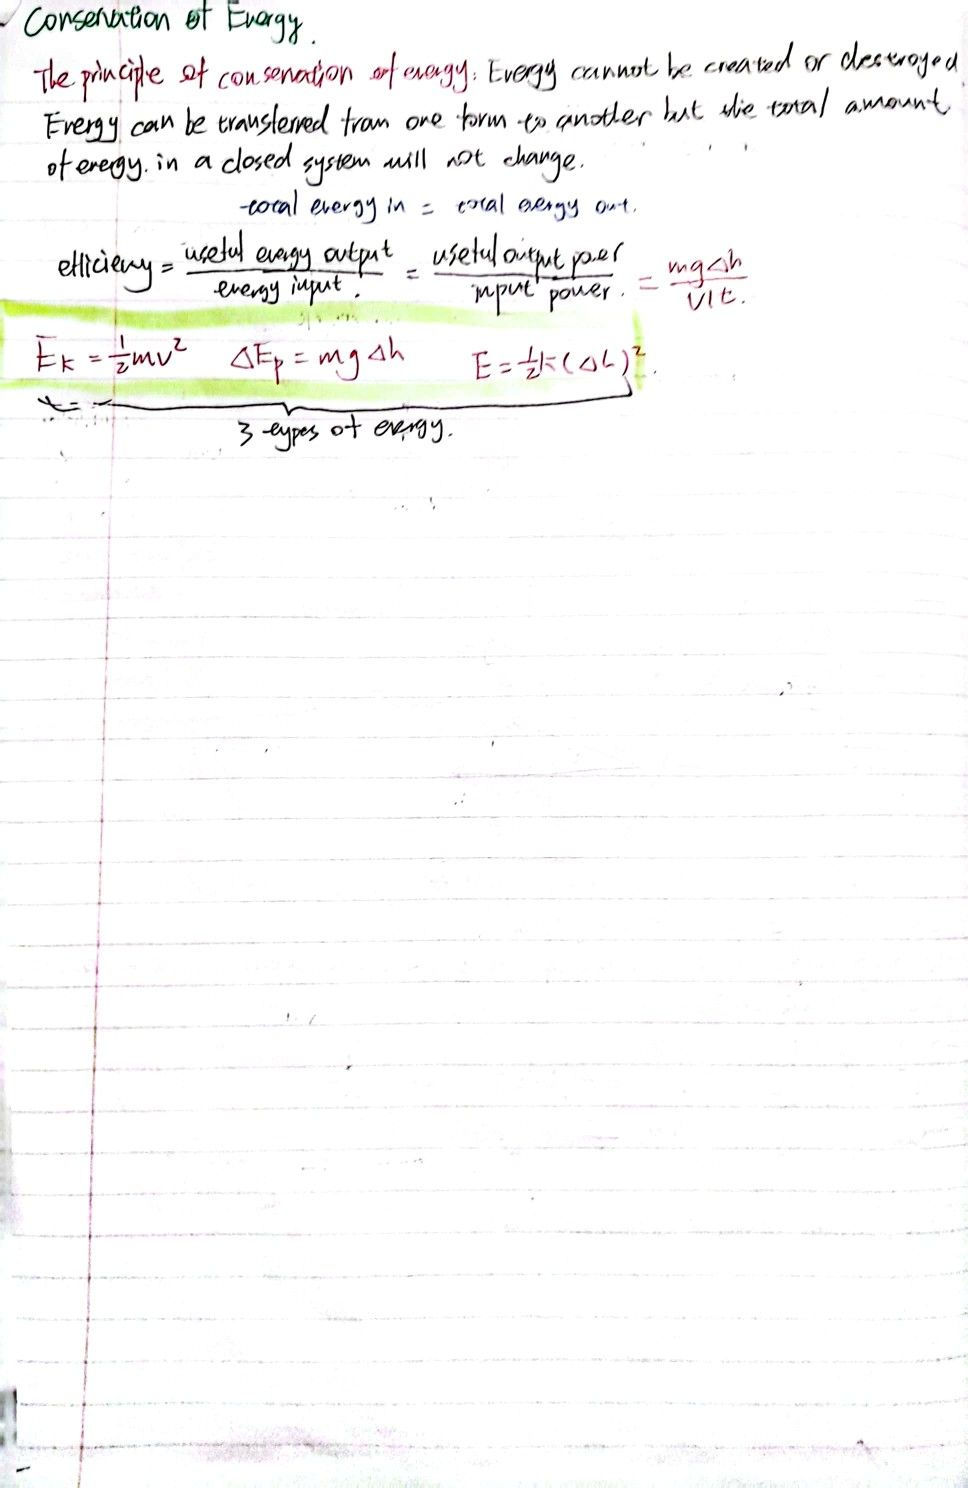 Conservation of Energy.
The principle of conservation of energy: Energy cannot be created or destroyed
Energy can be transferred from one form to another but the total amount
of energy. in a closed system will not change.
total energy in = total energy out.
efficiency = useful energy output / energy input. = useful output power / input power. = mgΔh / VIt.
Ek = 1/2 mv² ΔEp = mgΔh E = 1/2 k(ΔL)².
3 types of energy.